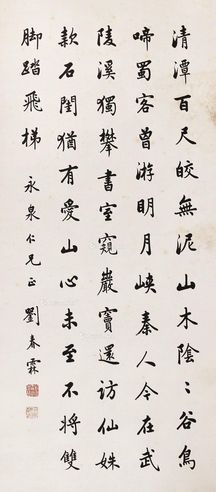 清潭百尺皎無泥山木陰〻谷鳥
啼蜀客曾游明月峽秦人今在武
陵溪獨攀書室窺巖竇還訪仙姝
款石閨猶有愛山心未至不將雙
脚踏飛梯
永泉仁兄正
劉春霖